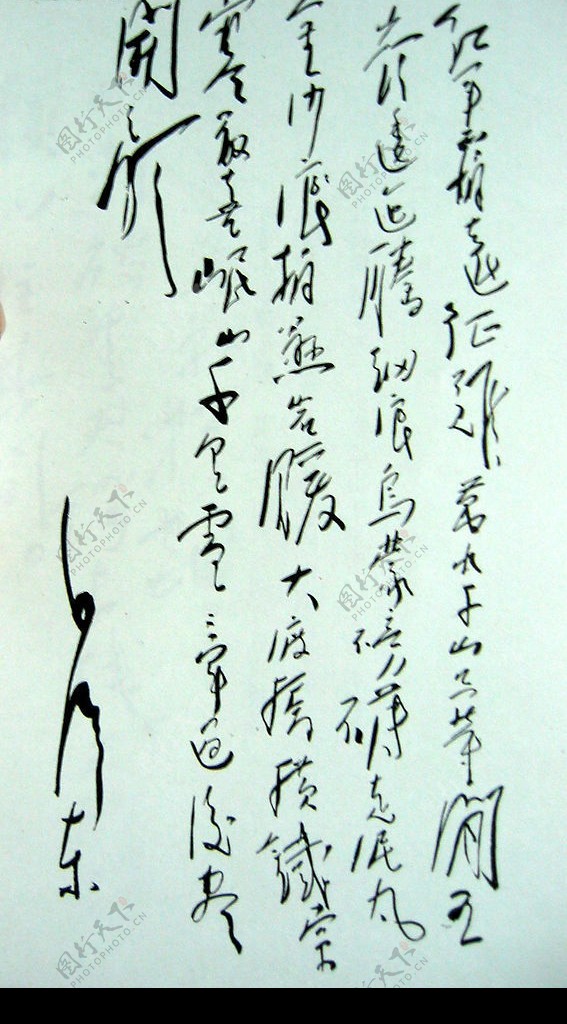 紅軍不怕遠征難萬水千山只等閒五
嶺逶迤騰細浪烏蒙磅礴走泥丸
金沙浪拍懸岩暖大渡橋横鐵索
寒更喜岷山千里雪三軍過後盡
開顏
毛澤东
图行天下
PHOTOPHOTO.CN
图行天下
PHOTOPHOTO.CN
图行天下
PHOTOPHOTO.CN
图行天下
PHOTOPHOTO.CN
图行天下
PHOTOPHOTO.CN
图行天下
PHOTOPHOTO.CN